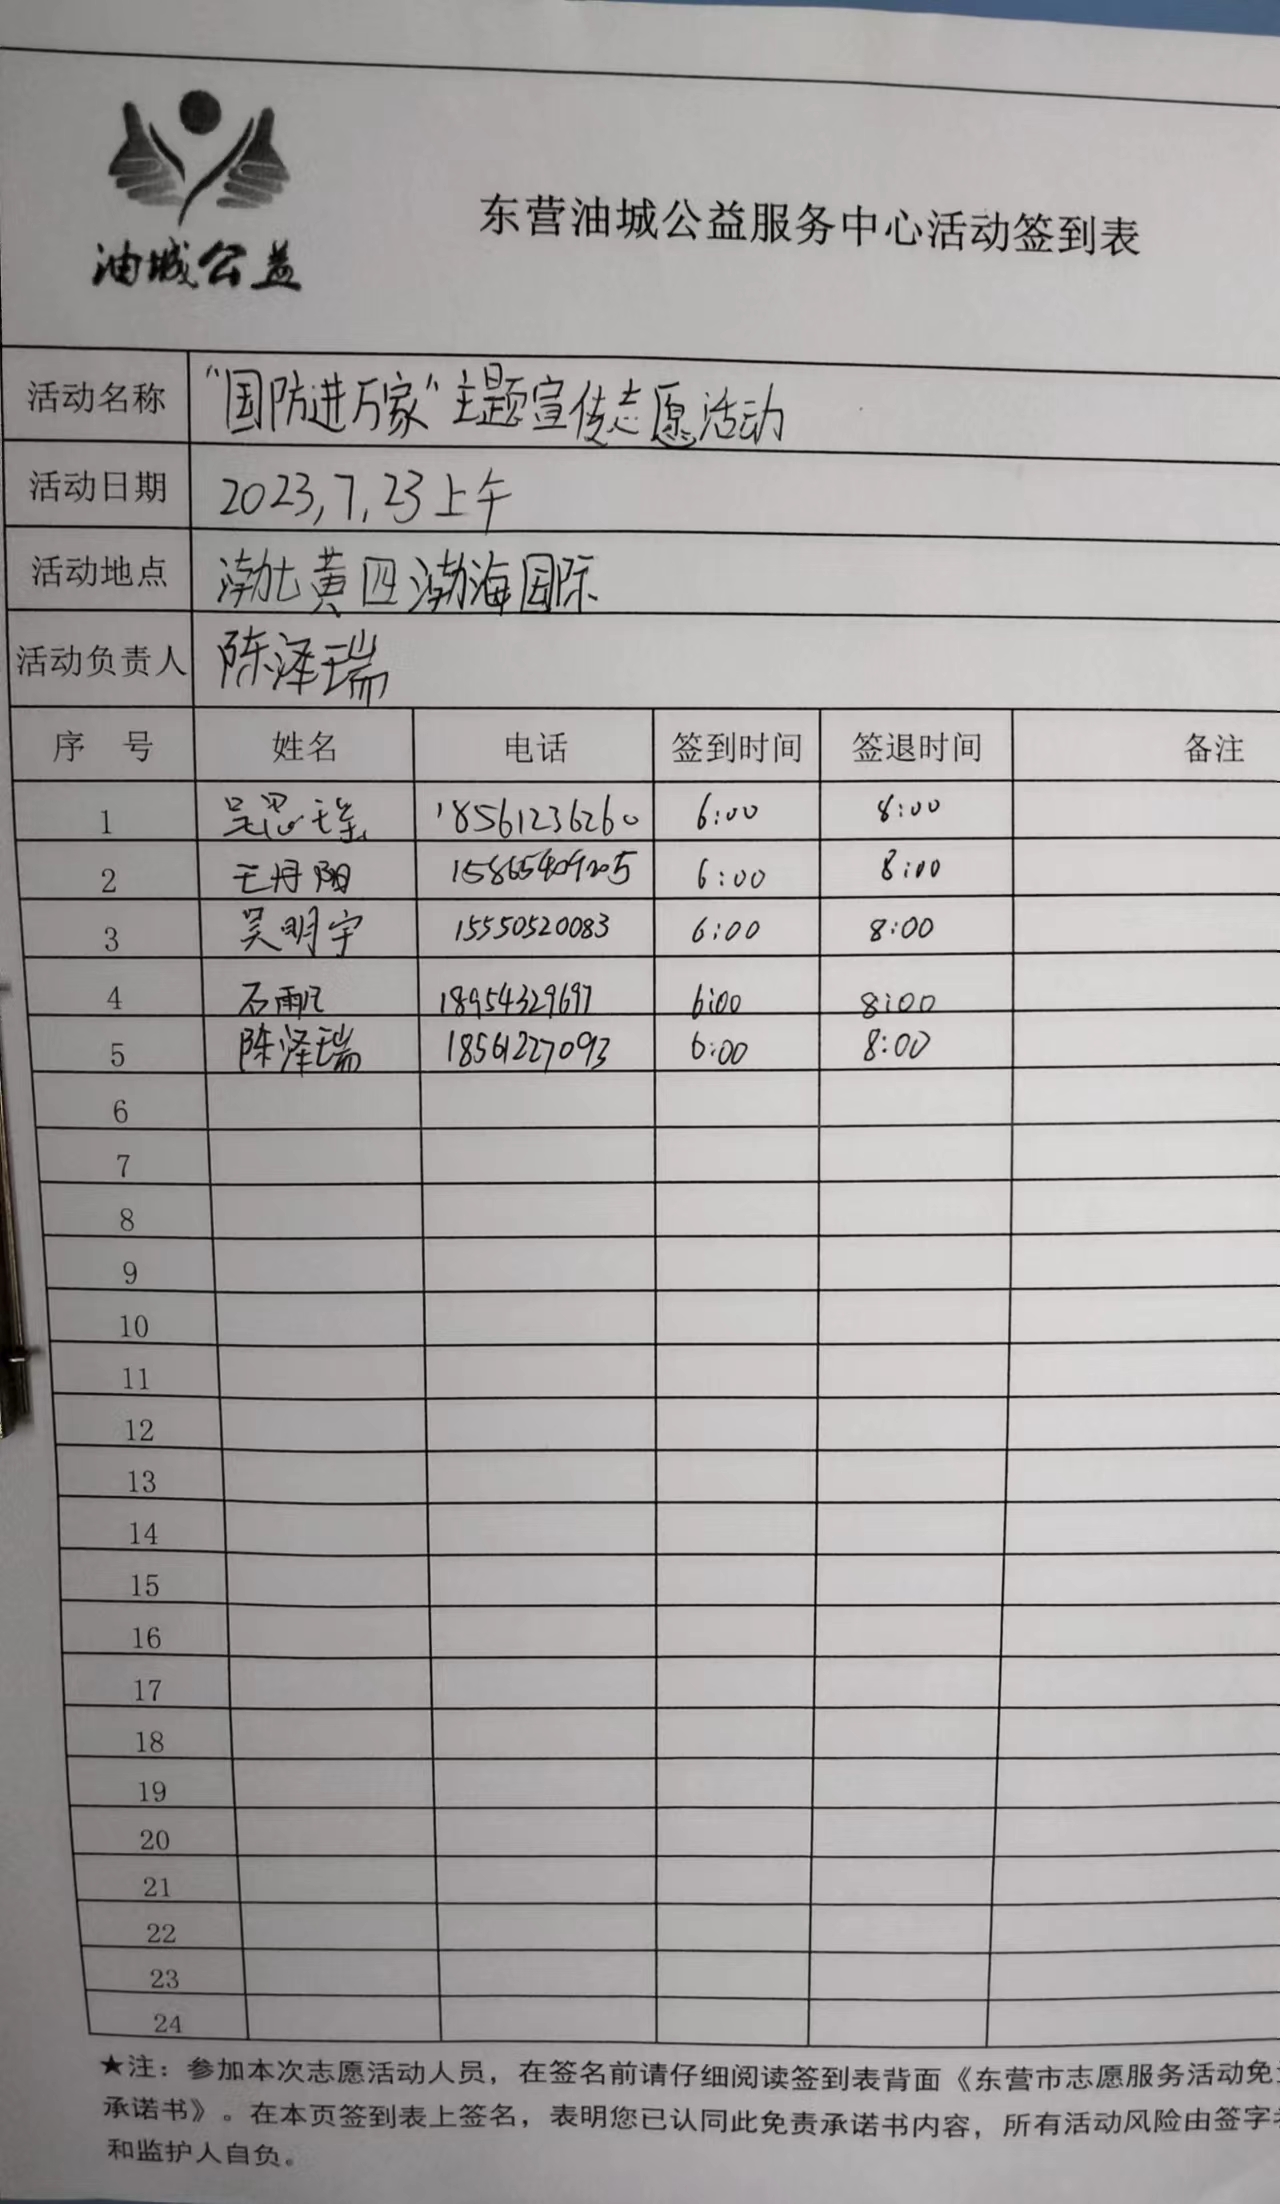 油城公益
东营油城公益服务中心活动签到表
活动名称 "国防进万家"主题宣传志愿活动
活动日期 2023,7,23上午
活动地点 渤七黄四渤海国际
活动负责人 陈泽瑞
序 号 姓名 电话 签到时间 签退时间 备注
1 吴思瑶 18561236260 6:00 8:00
2 王丹阳 15865409205 6:00 8:00
3 吴明宇 15550520083 6:00 8:00
4 石雨 18954329697 6:00 8:00
5 陈泽瑞 18561227093 6:00 8:00
6
7
8
9
10
11
12
13
14
15
16
17
18
19
20
21
22
23
24
★注：参加本次志愿活动人员，在签名前请仔细阅读签到表背面《东营市志愿服务活动免
承诺书》。在本页签到表上签名，表明您已认同此免责承诺书内容，所有活动风险由签字
和监护人自负。